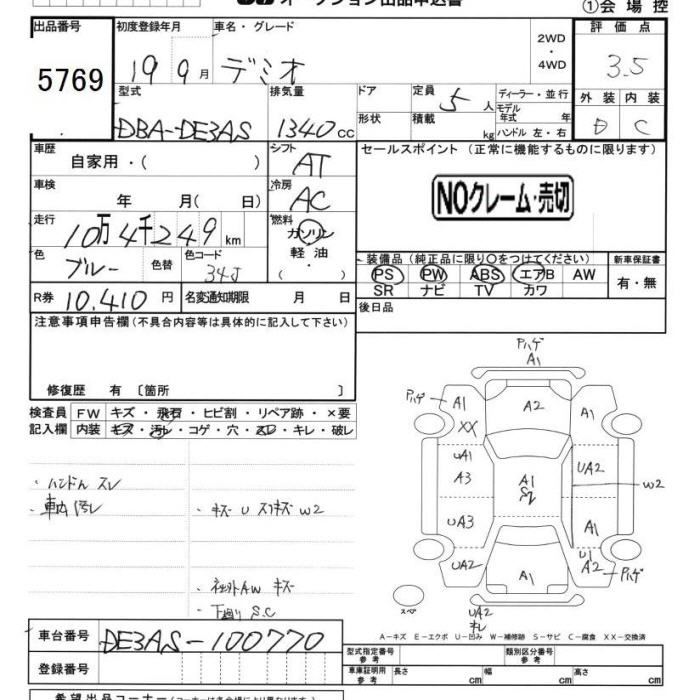 オークション出品申込書
①会場控
出品番号 初度登録年月 車名・グレード 2WD・4WD 評価点
5769 19 9月 デミオ 3.5
型式 排気量 ドア 定員 5人 ディーラー・並行 外装 内装
DBA-DE3AS 1340cc 形状 積載 kg モデル年式 年 D C
ハンドル 左・右
車歴 自家用・( ) シフト AT セールスポイント (正常に機能するものに限ります)
車検 年 月( 日) 冷房 AC NOクレーム・売切
走行 10万4千249km 燃料 ガソリン 軽油 ・( )
色 ブルー 色替 色コード 34J
装備品 (純正品に限り○をつけてください) 新車保証書
PS PW ABS エアB AW 有・無
SR ナビ TV カワ
R券 10,410円 名変通知期限 月 日 後日品
注意事項申告欄 (不具合内容等は具体的に記入して下さい)
修復歴 有 〔箇所 〕
検査員 FW キズ・飛石・ヒビ割・リペア跡・×要
記入欄 内装 キズ・汚レ・コゲ・穴・スレ・キレ・破レ
・ハンドル スレ
・車内汚レ
・キズ U スリキズ W2
・社外AW キズ
・下廻り S.C
Pハゲ
A1
Pハゲ A1 A2 A1
XX
UA1 UA2
A3 A1 W2
UA3 A1
U1
UA2 A1 A2 Pハゲ
スペア UA2
キレ
A-キズ E-エクボ U-凹み W-補修跡 S-サビ C-腐食 XX-交換済
車台番号 DE3AS-100770
登録番号
型式指定番号 参考 類別区分番号 参考
車庫証明用 参考 長さ cm 幅 cm 高さ cm
希望出品コーナー (コーナーは各会場により異なります)